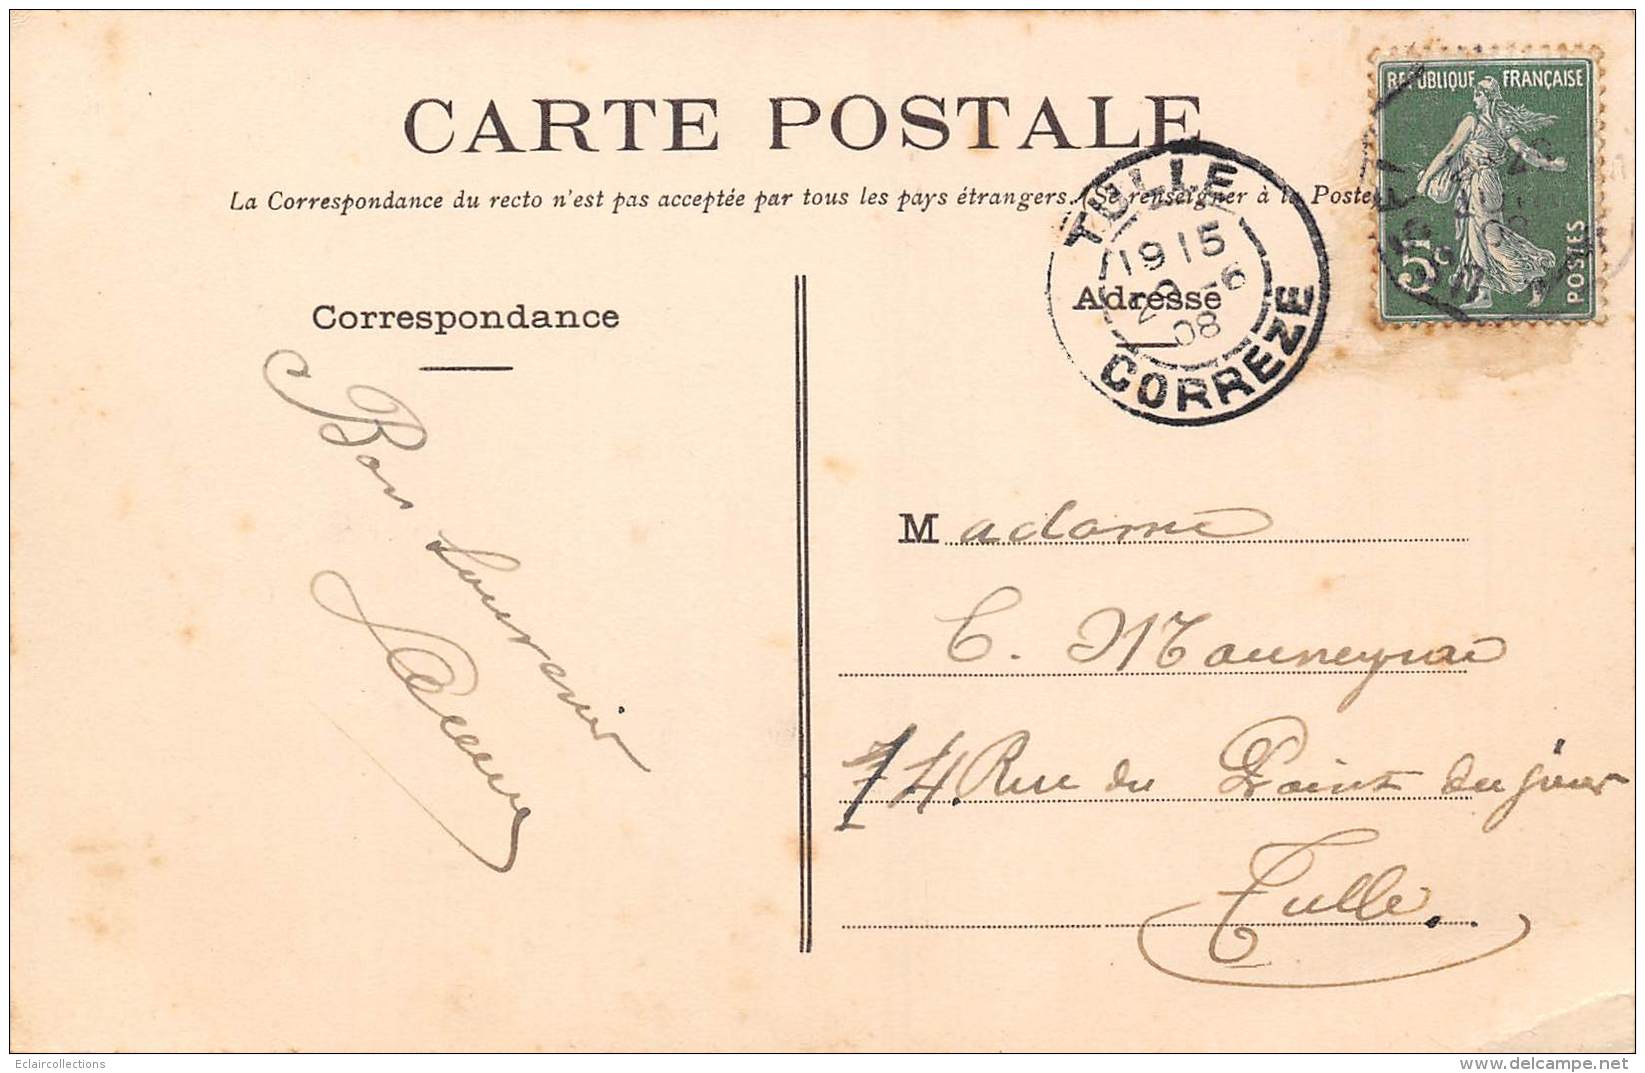 CARTE POSTALE
La Correspondance du recto n'est pas acceptée par tous les pays étrangers. (Se renseigner à la Poste
RÉPUBLIQUE FRANÇAISE
5c
POSTES
TULLE
1915
20 -6
08
CORREZE
Correspondance
Adresse
Bon Souvenir
Madame
C. Mouneyrac
14 Rue du Point du jour
Tulle.
Eclaircollections
www.delcampe.net